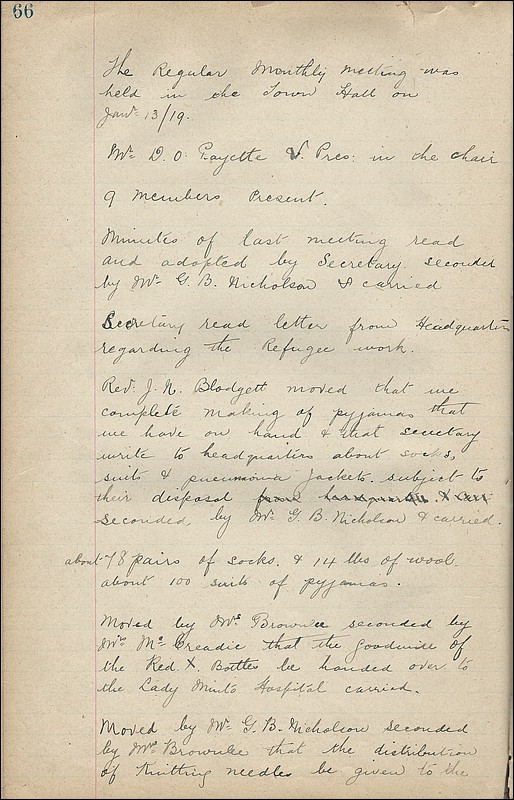 66
The Regular Monthly meeting was
held in the Town Hall on
Jan. 13/19.
Mr. D. O. Payette V. Pres: in the chair
9 members Present.
Minutes of last meeting read
and adopted by Secretary. seconded
by Mr. G. B. Nicholson & carried
Secretary read letter from Headquarters
regarding the Refugee work.
Rev. J. N. Blodgett moved that we
complete making of pyjamas that
we have on hand & that secretary
write to headquarters about socks,
suits & pneumonia jackets. subject to
their disposal
seconded by Mr. G. B. Nicholson & carried.
about 78 pairs of socks. & 14 lbs of wool-
about 100 suits of pyjamas.
Moved by Mrs Brownlee seconded by
Mrs Mc Creadie that the goodwine of
the Red. X. Bottles be handed over to
the Lady Minto Hospital carried.
Moved by Mr. G. B. Nicholson seconded
by Mrs Brownlee that the distribution
of Knitting needles be given to the